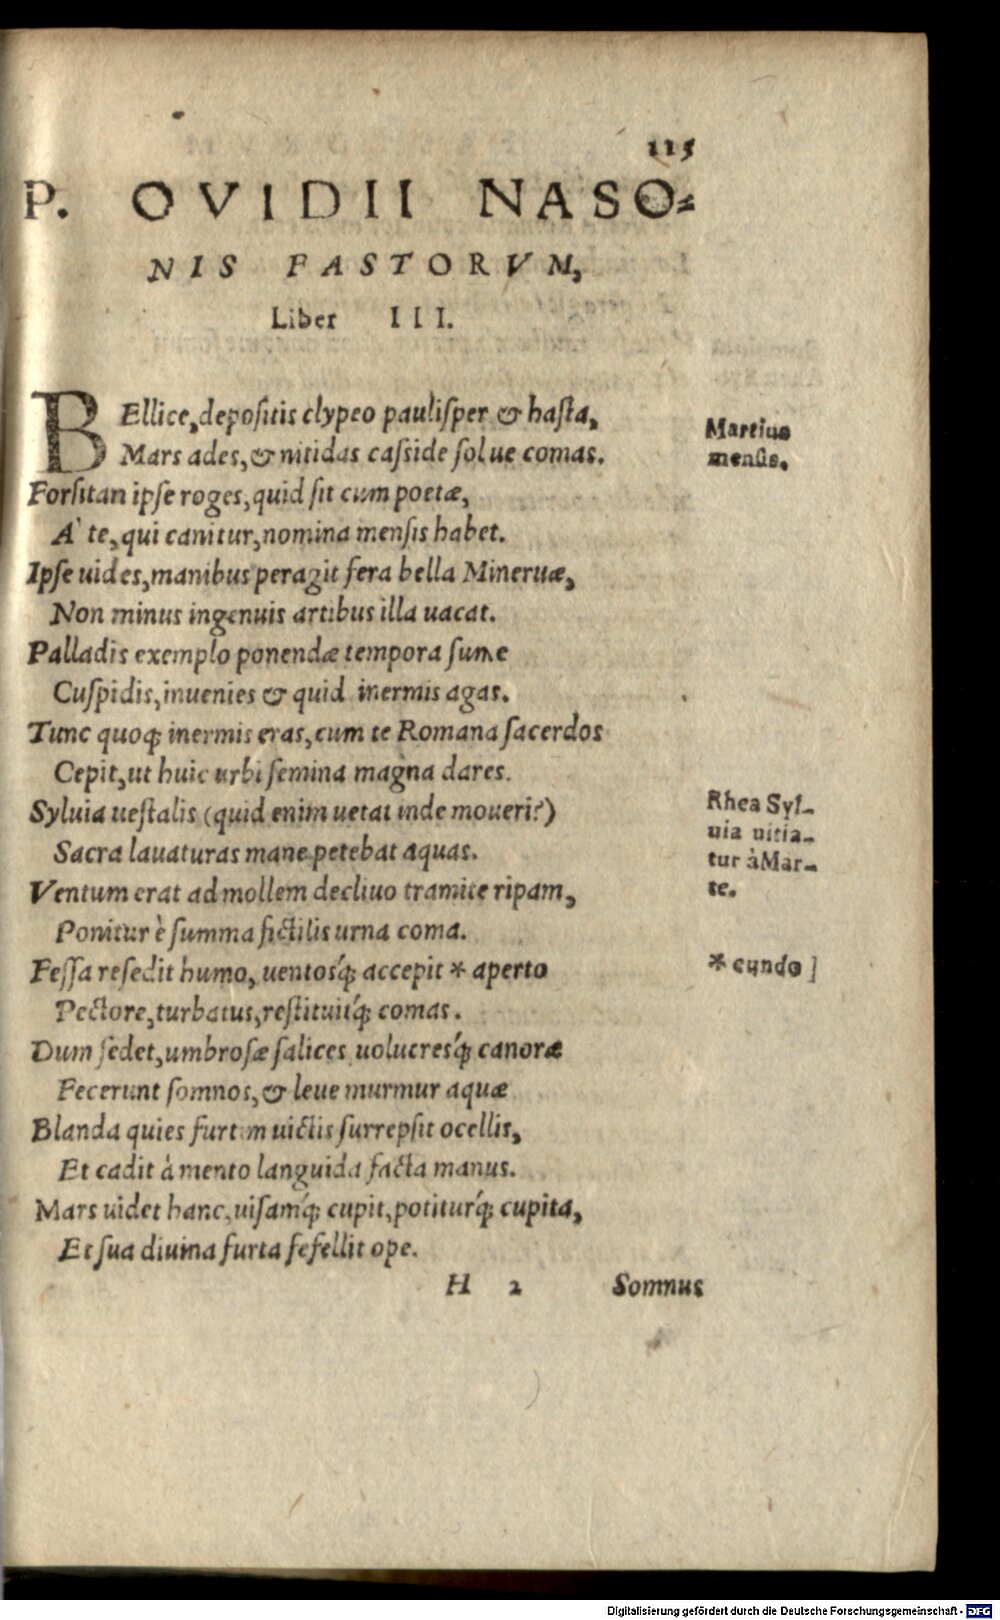 115
P. OVIDII NASO=
NIS FASTORVM,
Liber III.
BEllice, depositis clypeo paulisper & hasta,
Mars ades, & nitidas casside solue comas.
Martius
mensis.
Forsitan ipse roges, quid sit cum poetæ,
A` te, qui canitur, nomina mensis habet.
Ipse uides, manibus peragit fera bella Mineruæ,
Non minus ingenuis artibus illa uacat.
Palladis exemplo ponendæ tempora sume
Cuspidis, inuenies & quid inermis agas.
Tunc quoq; inermis eras, cum te Romana sacerdos
Cepit, ut huic urbi semina magna dares.
Syluia uestalis (quid enim uetat inde moueri?)
Sacra lauaturas mane petebat aquas.
Rhea Syl-
uia uitia-
tur àMar-
te.
Ventum erat ad mollem decliuo tramite ripam,
Ponitur è summa fictilis urna coma.
Fessa resedit humo, uentosq́; accepit * aperto
* eundo ]
Pectore, turbatus, restituitq́; comas.
Dum sedet, umbrosæ salices uolucresq́; canoræ
Fecerunt somnos, & leue murmur aquæ
Blanda quies furtim uictis surrepsit ocellis,
Et cadit à mento languida facta manus.
Mars uidet hanc, uisamq́; cupit, potiturq́; cupita,
Et sua diuina furta fefellit ope.
H 2 Somnus
Digitalisierung gefördert durch die Deutsche Forschungsgemeinschaft - DFG